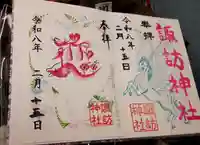 諏訪神社
奉拝
令和八年
二月十五日
諏訪
神社
奉拝
令和八年
二月十五日
諏訪
神社